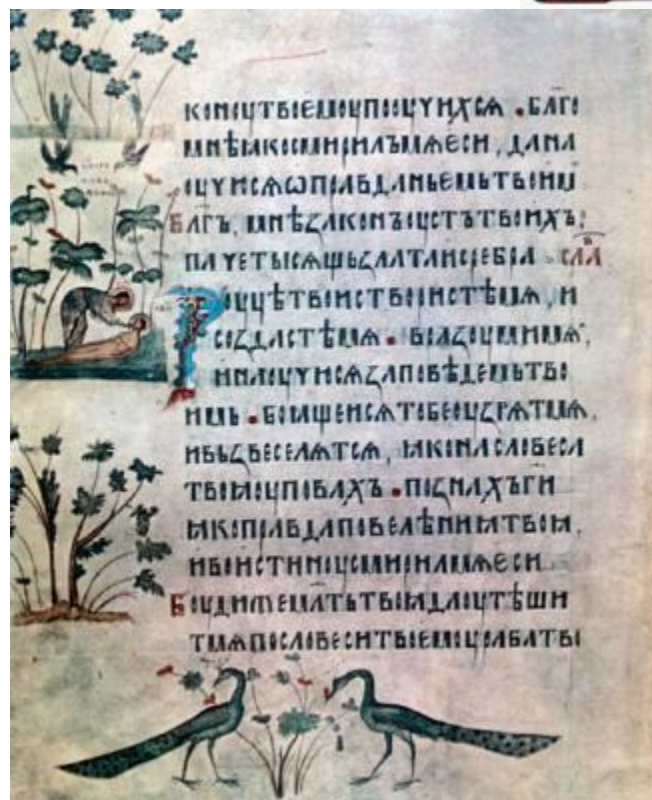 кономутвоемоупооучихсѧ . бл҃го
мнѣꙗкосмирилъмѧеси , дана
оучисѧѡправданьемьтвоимь
Бл҃гъ , мнѣзаконъоустътвоихъ :
пачетысѧщьзалтаисребра сла҃
Роуцѣтвоиствористѣмѧ , и
создастѣмѧ . вразоумимѧ ,
инаоучисѧзаповѣдемьтво
имь . боꙗщеисѧтобеоузрѧтмѧ ,
ивъзвеселѧтсѧ , ꙗконасловеса
твоꙗоуповахъ . познахъги҃
ꙗкоправдаповелѣниꙗтвоꙗ ,
ивоистиноусмирилмѧеси
Боудижемл҃тьтвоꙗдаоутѣши
тмѧпословеситвоемоурабатво